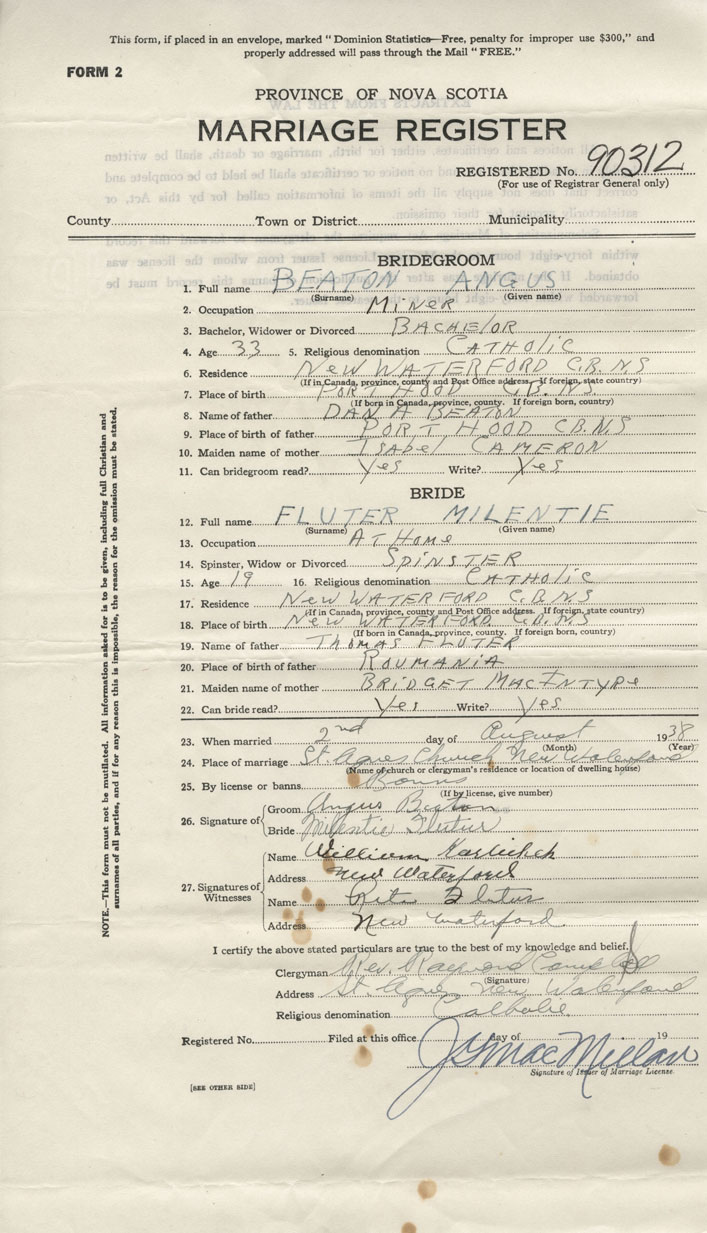 This form, if placed in an envelope, marked "Dominion Statistics—Free, penalty for improper use $300," and
properly addressed will pass through the Mail "FREE."
FORM 2
PROVINCE OF NOVA SCOTIA
MARRIAGE REGISTER
REGISTERED No. 90312
(For use of Registrar General only)
County Town or District Municipality
BRIDEGROOM
1. Full name BEATON ANGUS
(Surname) (Given name)
2. Occupation MINER
3. Bachelor, Widower or Divorced BACHELOR
4. Age 33 5. Religious denomination CATHOLIC
6. Residence NEW WATERFORD C.B.N.S
(If in Canada, province, county and Post Office address. If foreign, state country)
7. Place of birth PORT HOOD C.B. N.S.
(If born in Canada, province, county. If foreign born, country)
8. Name of father DAN A BEATON
9. Place of birth of father PORT HOOD C.B.N.S
10. Maiden name of mother ISABEL CAMERON
11. Can bridegroom read? Yes Write? Yes
BRIDE
12. Full name FLUTER MILENTIE
(Surname) (Given name)
13. Occupation AT HOME
14. Spinster, Widow or Divorced SPINSTER
15. Age 19 16. Religious denomination CATHOLIC
17. Residence NEW WATERFORD C.B.N.S
(If in Canada, province, county and Post Office address. If foreign, state country)
18. Place of birth NEW WATERFORD C.B.N.S
(If born in Canada, province, county. If foreign born, country)
19. Name of father THOMAS FLUTER
20. Place of birth of father ROUMANIA
21. Maiden name of mother BRIDGET MACINTYRE
22. Can bride read? Yes Write? Yes
23. When married 2nd day of August 1938
(Month) (Year)
24. Place of marriage St. Agnes Church, New Waterford
(Name of church or clergyman's residence or location of dwelling house)
25. By license or banns Banns
(If by license, give number)
26. Signature of Groom Angus Beaton
Bride Milentie Fluter
27. Signatures of Witnesses Name William
Address New Waterford
Name Rita Fluter
Address New Waterford
I certify the above stated particulars are true to the best of my knowledge and belief.
Clergyman Rev. Raymond Campbell
(Signature)
Address St. Agnes New Waterford
Religious denomination Catholic
Registered No. Filed at this office day of 19
MacMillan
Signature of Issuer of Marriage License.
[SEE OTHER SIDE]
NOTE.—This form must not be mutilated. All information asked for is to be given, including full Christian and
surnames of all parties, and if for any reason this is impossible, the reason for the omission must be stated.